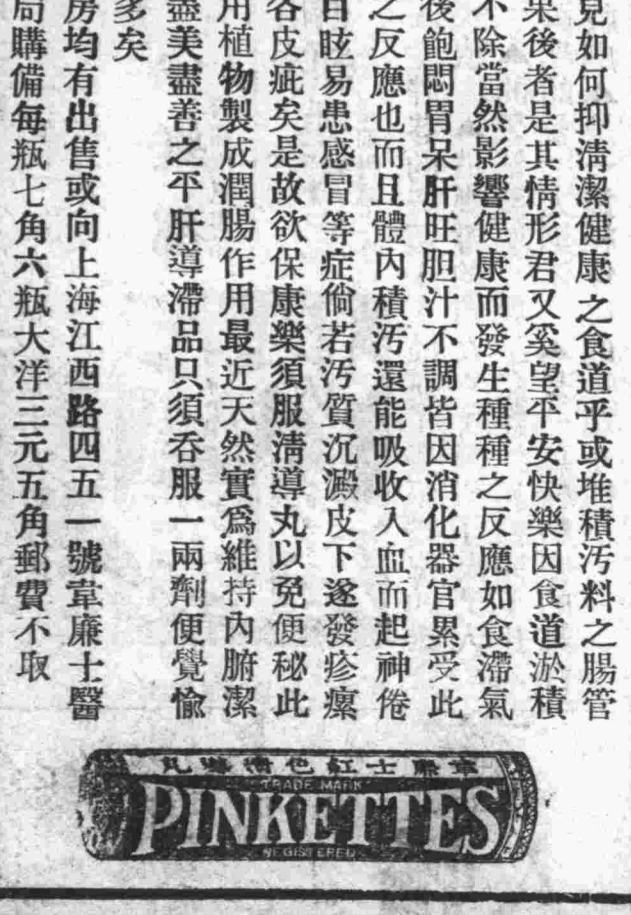 見如何抑清潔健康之食道乎或堆積汚料之腸管
果後者是其情形君又奚望平安快樂因食道淤積
不除當然影響健康而發生種種之反應如食滯氣
後飽悶胃呆肝旺胆汁不調皆因消化器官累受此
之反應也而且體內積汚還能吸收入血而起神倦
目眩易患感冒等症倘若汚質沉澱皮下遂發疹瘰
各皮疵矣是故欲保康樂須服淸導丸以免便秘此
用植物製成潤腸作用最近天然實爲維持內腑潔
盡美盡善之平肝導滯品只須吞服一兩劑便覺愉
多矣
房均有出售或向上海江西路四五一號韋廉士醫
局購備每瓶七角六瓶大洋三元五角郵費不取
韋廉士紅色淸導丸
TRADE MARK
PINKETTES
REGISTERED